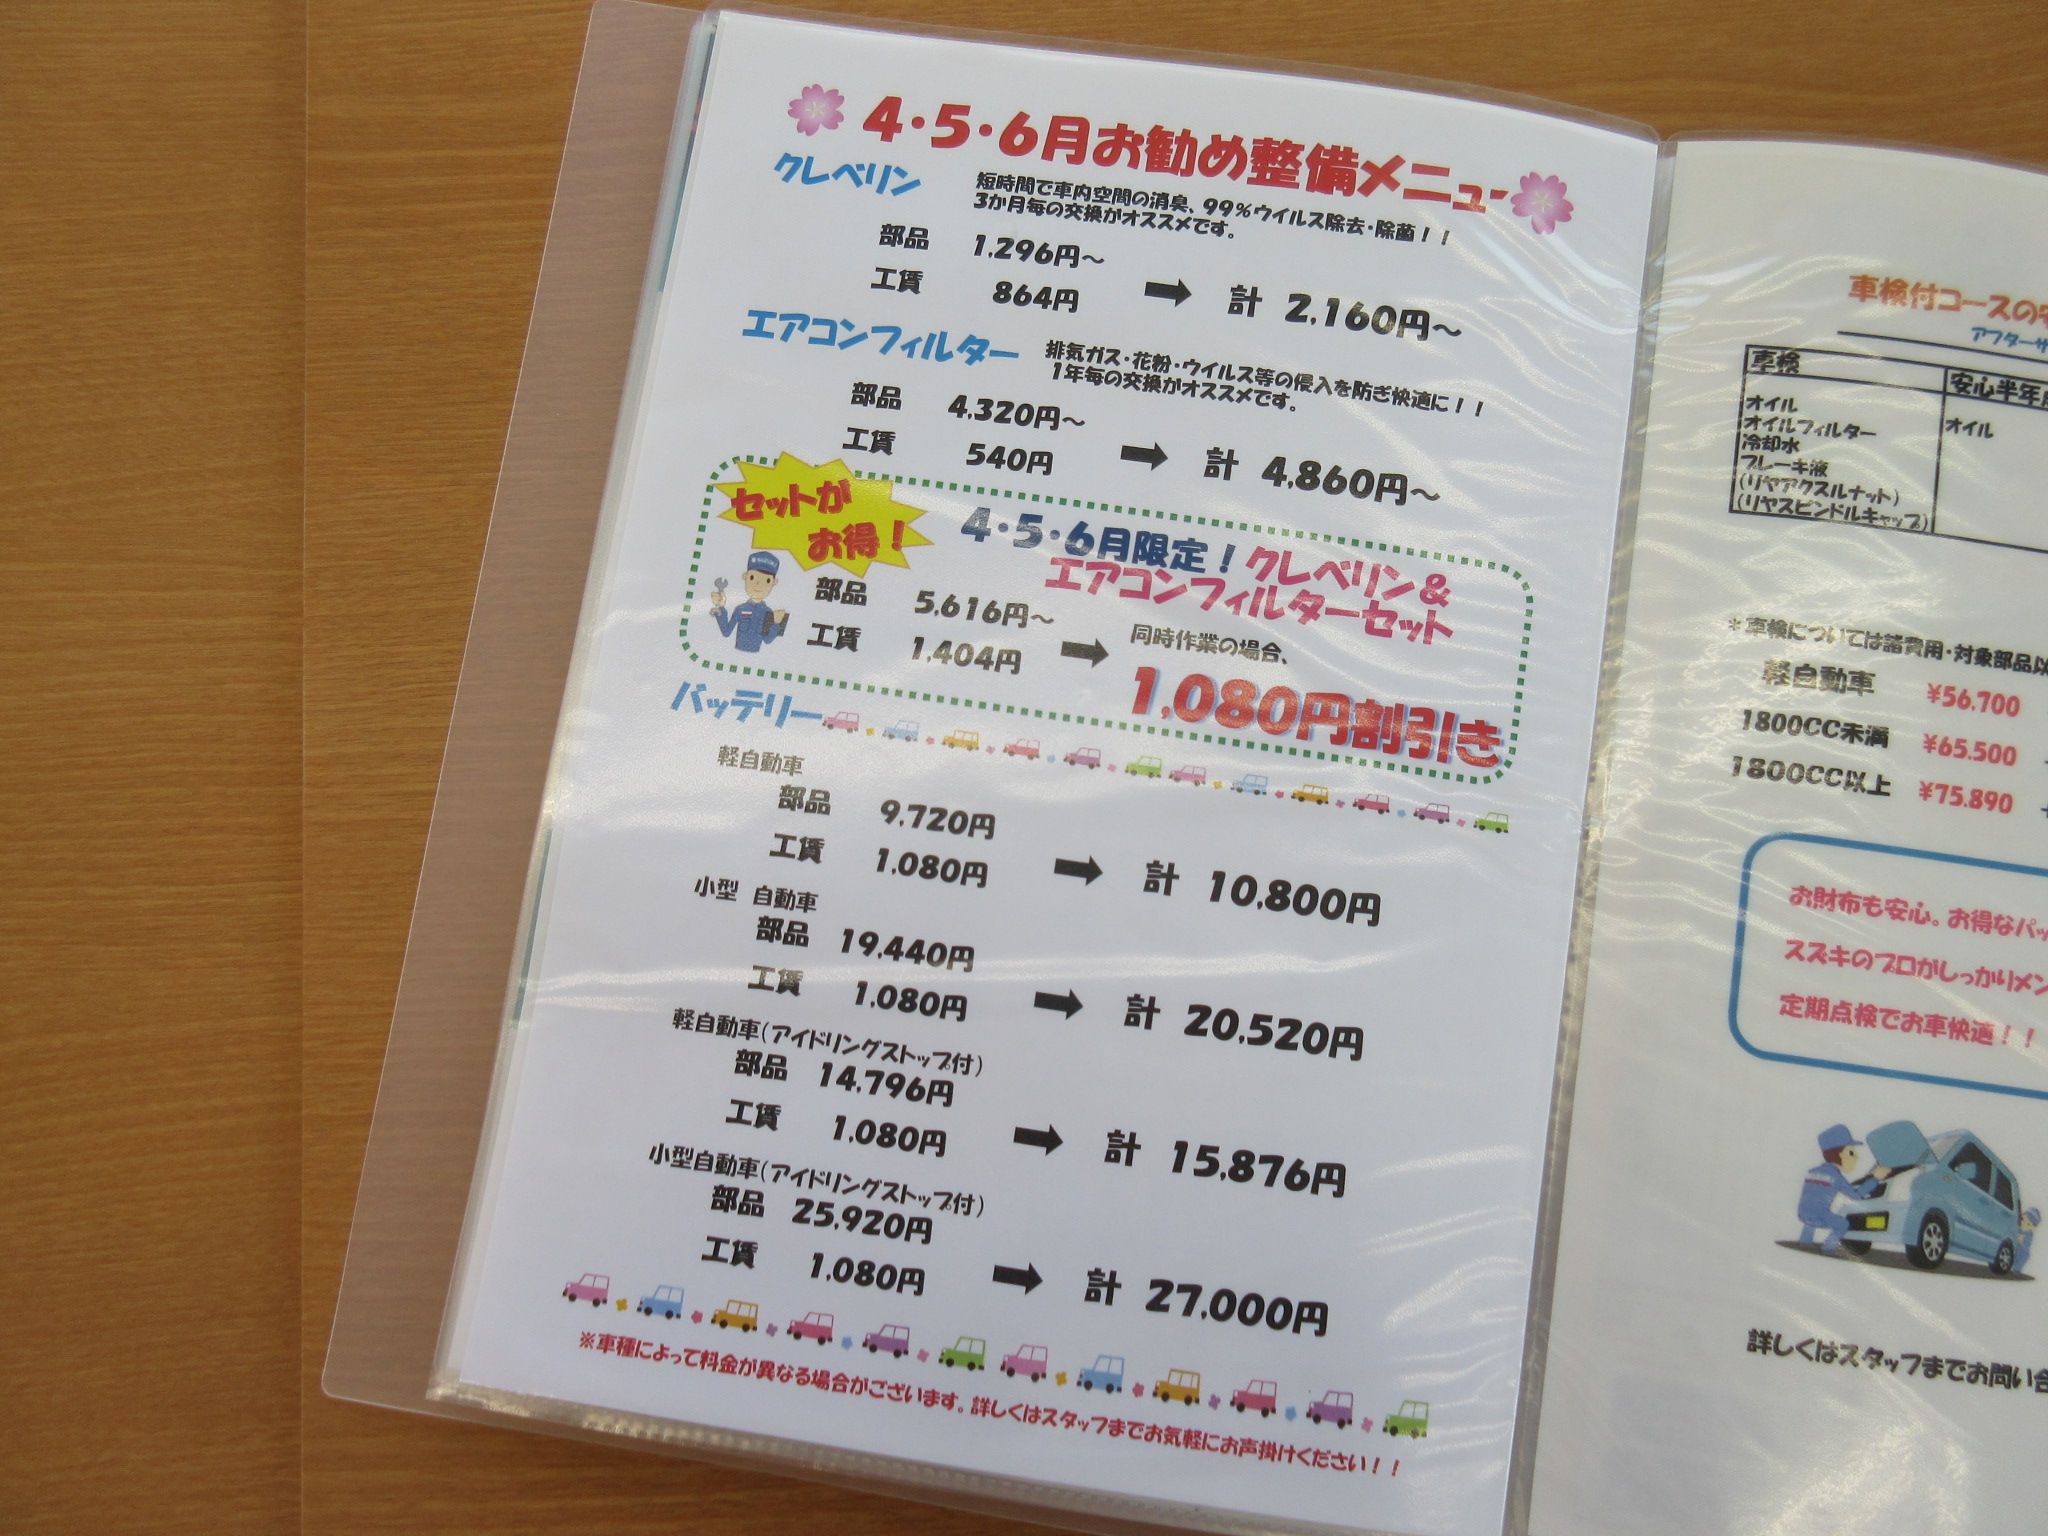 4・5・6月お勧め整備メニュー
クレベリン
短時間で車内空間の消臭、99%ウイルス除去・除菌！！
3か月毎の交換がオススメです。
部品 1,296円～
工賃 864円 ➡ 計 2,160円～
エアコンフィルター
排気ガス・花粉・ウイルス等の侵入を防ぎ快適に！！
1年毎の交換がオススメです。
部品 4,320円～
工賃 540円 ➡ 計 4,860円～
セットが
お得！
4・5・6月限定！クレベリン&
エアコンフィルターセット
部品 5,616円～
工賃 1,404円 ➡ 同時作業の場合、
1,080円割引き
バッテリー
軽自動車
部品 9,720円
工賃 1,080円 ➡ 計 10,800円
小型 自動車
部品 19,440円
工賃 1,080円 ➡ 計 20,520円
軽自動車(アイドリングストップ付)
部品 14,796円
工賃 1,080円 ➡ 計 15,876円
小型自動車(アイドリングストップ付)
部品 25,920円
工賃 1,080円 ➡ 計 27,000円
※車種によって料金が異なる場合がございます。詳しくはスタッフまでお気軽にお声掛けください！！
車検付コースの
アフターサ
車検 安心半年
オイル オイル
オイルフィルター
冷却水
ブレーキ液
(リヤアクスルナット)
(リヤスピンドルキャップ)
*車検については諸費用・対象部品以
軽自動車 ¥56.700
1800CC未満 ¥65.500
1800CC以上 ¥75.890
お財布も安心。お得なパッ
スズキのプロがしっかりメン
定期点検でお車快適！！
詳しくはスタッフまでお問い合